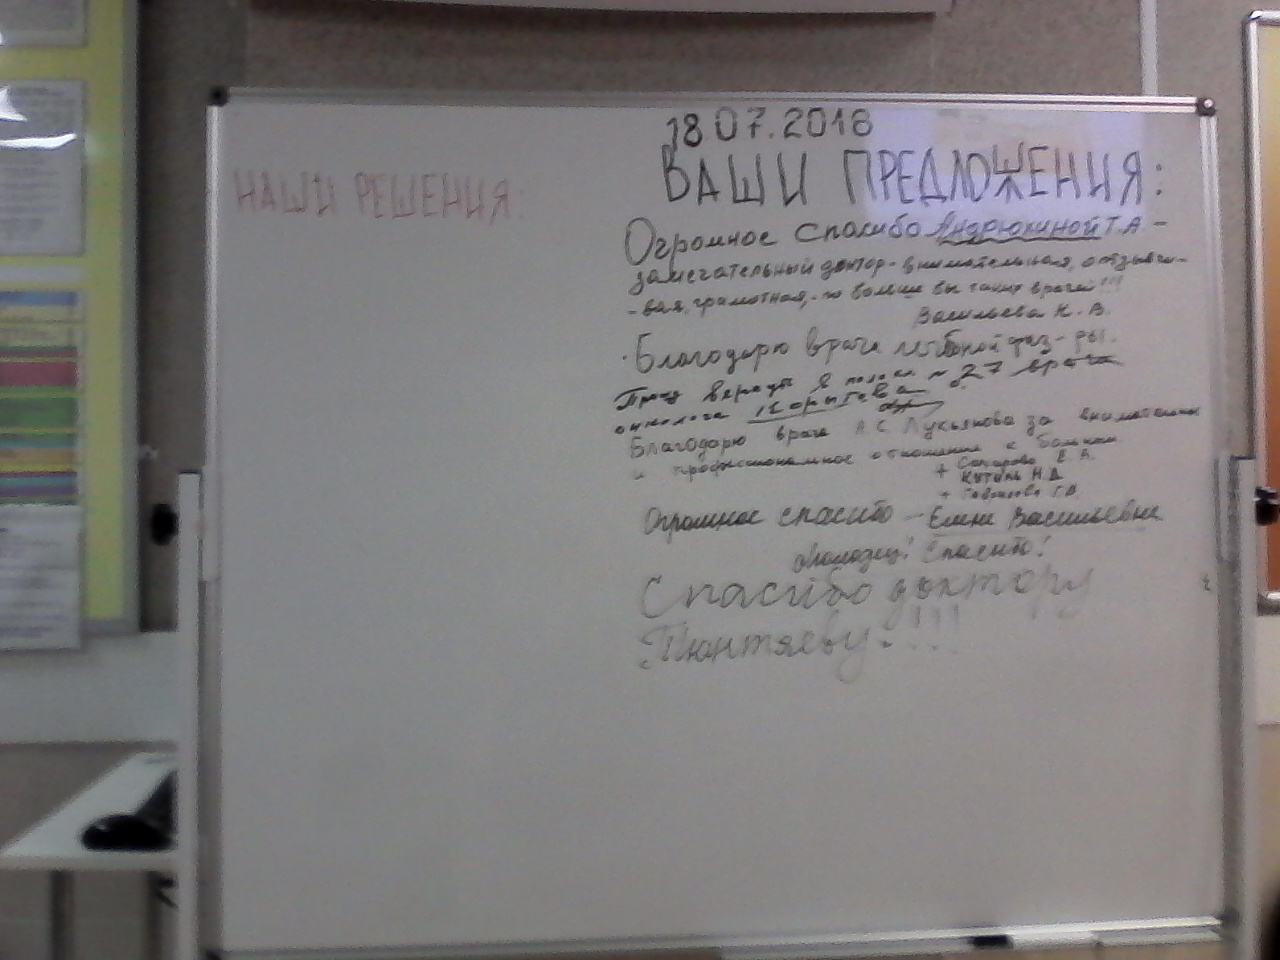 18.07.2018
НАШИ РЕШЕНИЯ:
ВАШИ ПРЕДЛОЖЕНИЯ:
Огромное спасибо Андрюхиной Т.А –
замечательный доктор - внимательная, отзывчи-
- вая, грамотная, - по больше бы таких врачей!!!
Васильева Н. В.
Благодарю врача лечебной физ-ры.
в 27 врача
онколога Корытова
Благодарю врача А.С Лукьянова за внимательное
и профессиональное отношение к больным
+
+ Н.Д
+
Огромное спасибо – Елене Васильевне
Молодец! Спасибо!
Спасибо доктору
Тюнтяеву.!!!